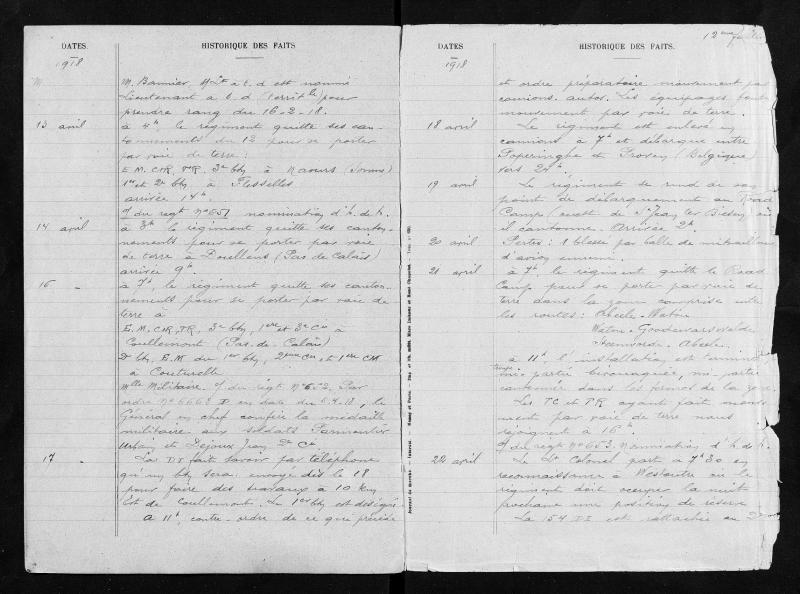 DATES. HISTORIQUE DES FAITS
1918
M. Bannier, S/Lt à t. d est nommé
Lieutenant à t. d (territle) pour
prendre rang du 16-2-18.
13 avril à 4h le régiment quitte ses can-
tonnements du 12 pour se porter
par voie de terre :
E.M. CHR, TR, 3e btn à Naours (Somme)
1er et 2e btn à Flesselles
arrivée 14h
O/ du régt No 651 nomination d'h. de t.
14 avril à 3h le régiment quitte ses canton-
nements pour se porter par voie
de terre à Doullens (Pas de Calais)
arrivée 9h
16 - à 7h, le régiment quitte ses canton-
nements pour se porter par voie de
terre à
E.M. CHR, TR, 3e btn, 1ere et 3e Cie à
Coullemont (Pas-de-Calais)
2e btn, E.M. du 1er btn, 2eme Cie et 1ere CM
à Couturelle
Mlle Militaire. O/ du régt No 652. Par
ordre No 6663 D en date du 6.4.18, le
Général en chef confère la médaille
militaire aux soldats Parmentier
Urbain et Dejoux Jean 2e Cie
17 - La DI fait savoir par téléphone
qu'un btn sera envoyé dès le 18
pour faire des travaux à 10 km
Est de Coullemont. Le 1er btn est désigné
A 11h, contre-ordre de ce qui précède
12eme feuillet
DATES. HISTORIQUE DES FAITS.
1918
et ordre préparatoire mouvement par
camions autos. Les équipages font
mouvement par voie de terre.
18 avril Le régiment est enlevé en
camions à 7h et débarque entre
Poperinghe et Proven (Belgique)
vers 20h
19 avril Le régiment se rend de son
point de débarquement au Road
Camp (ouest de St Jean ter Biezen) où
il cantonne. Arrivée 2h.
20 avril Pertes : 1 blessé par balle de mitrailleuse
d'avion ennemi.
21 avril à 7h, le régiment quitte le Road
Camp pour se porter par voie de
terre dans la zone comprise entre
les routes : Abeele-Watou
Watou-Goodewaersvelde
Steenvorde-Abeele.
à 11h l'installation est terminée
mi-partie bivouaquée, mi-partie
cantonnée dans les fermes de la zone.
Les TC et TR ayant fait mouve-
ment par voie de terre nous
rejoignent à 16h.
O/ du régt No 653. Nomination d'h. de t.
22 avril Le Lt Colonel part à 7h30 en
reconnaissance à Westoutre où le
régiment doit occuper la nuit
prochaine une position de réserve
La 154 DI est rattachée au 2e